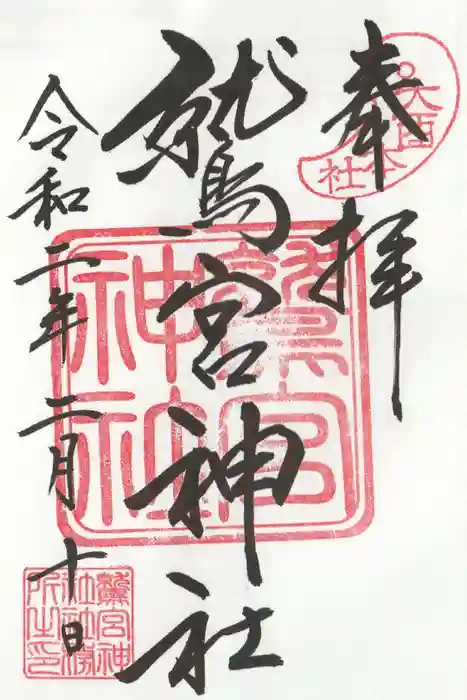 奉拝
鷲宮神社
令和二年二月十日
鷲宮神社
鷲宮神
社社務
所之印